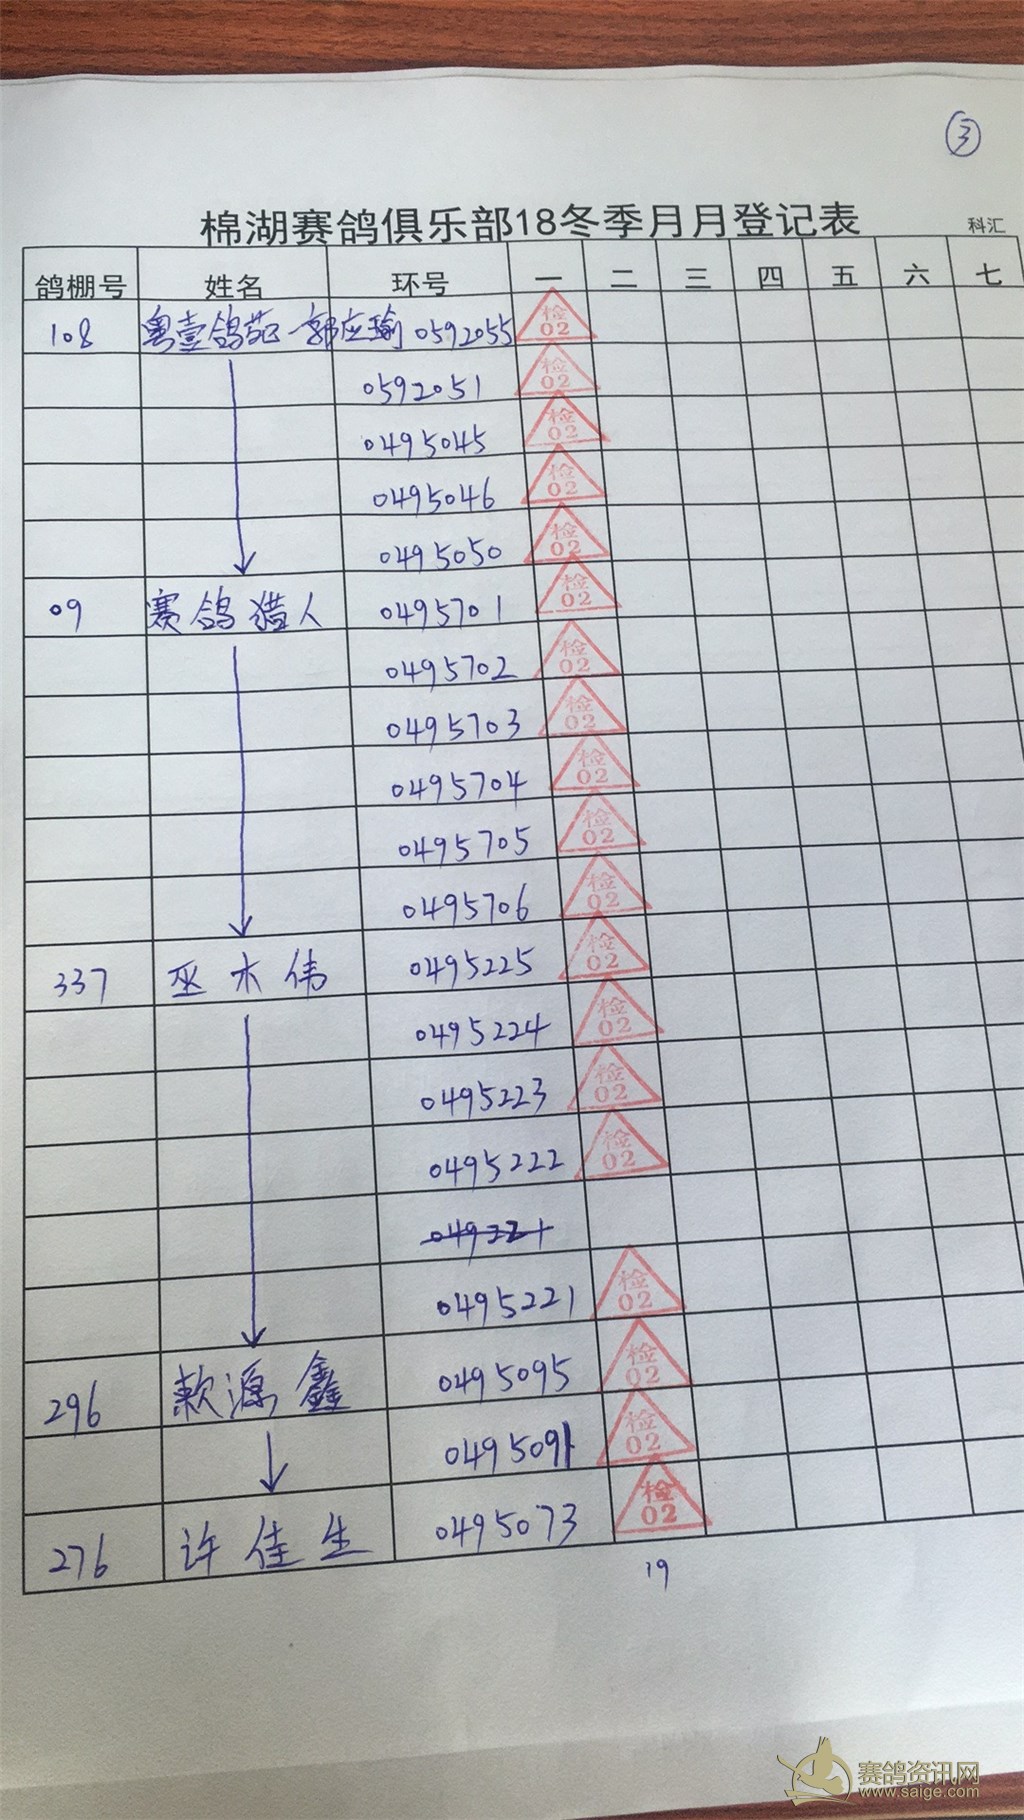 ③
棉湖赛鸽俱乐部18冬季月月登记表 科汇
鸽棚号 姓名 环号 一 二 三 四 五 六 七
108 粤壹鸽苑-郭应瑜 0592055 检02
0592051 检02
0495045 检02
0495046 检02
0495050 检02
09 赛鸽猎人 0495701 检02
0495702 检02
0495703 检02
0495704 检02
0495705 检02
0495706 检02
337 巫木伟 0495225 检02
0495224 检02
0495223 检02
0495222 检02
0495221 检02
296 源鑫 0495095 检02
0495091 检02
276 许佳生 0495073 检02
19
赛鸽资讯网
www.saige.com